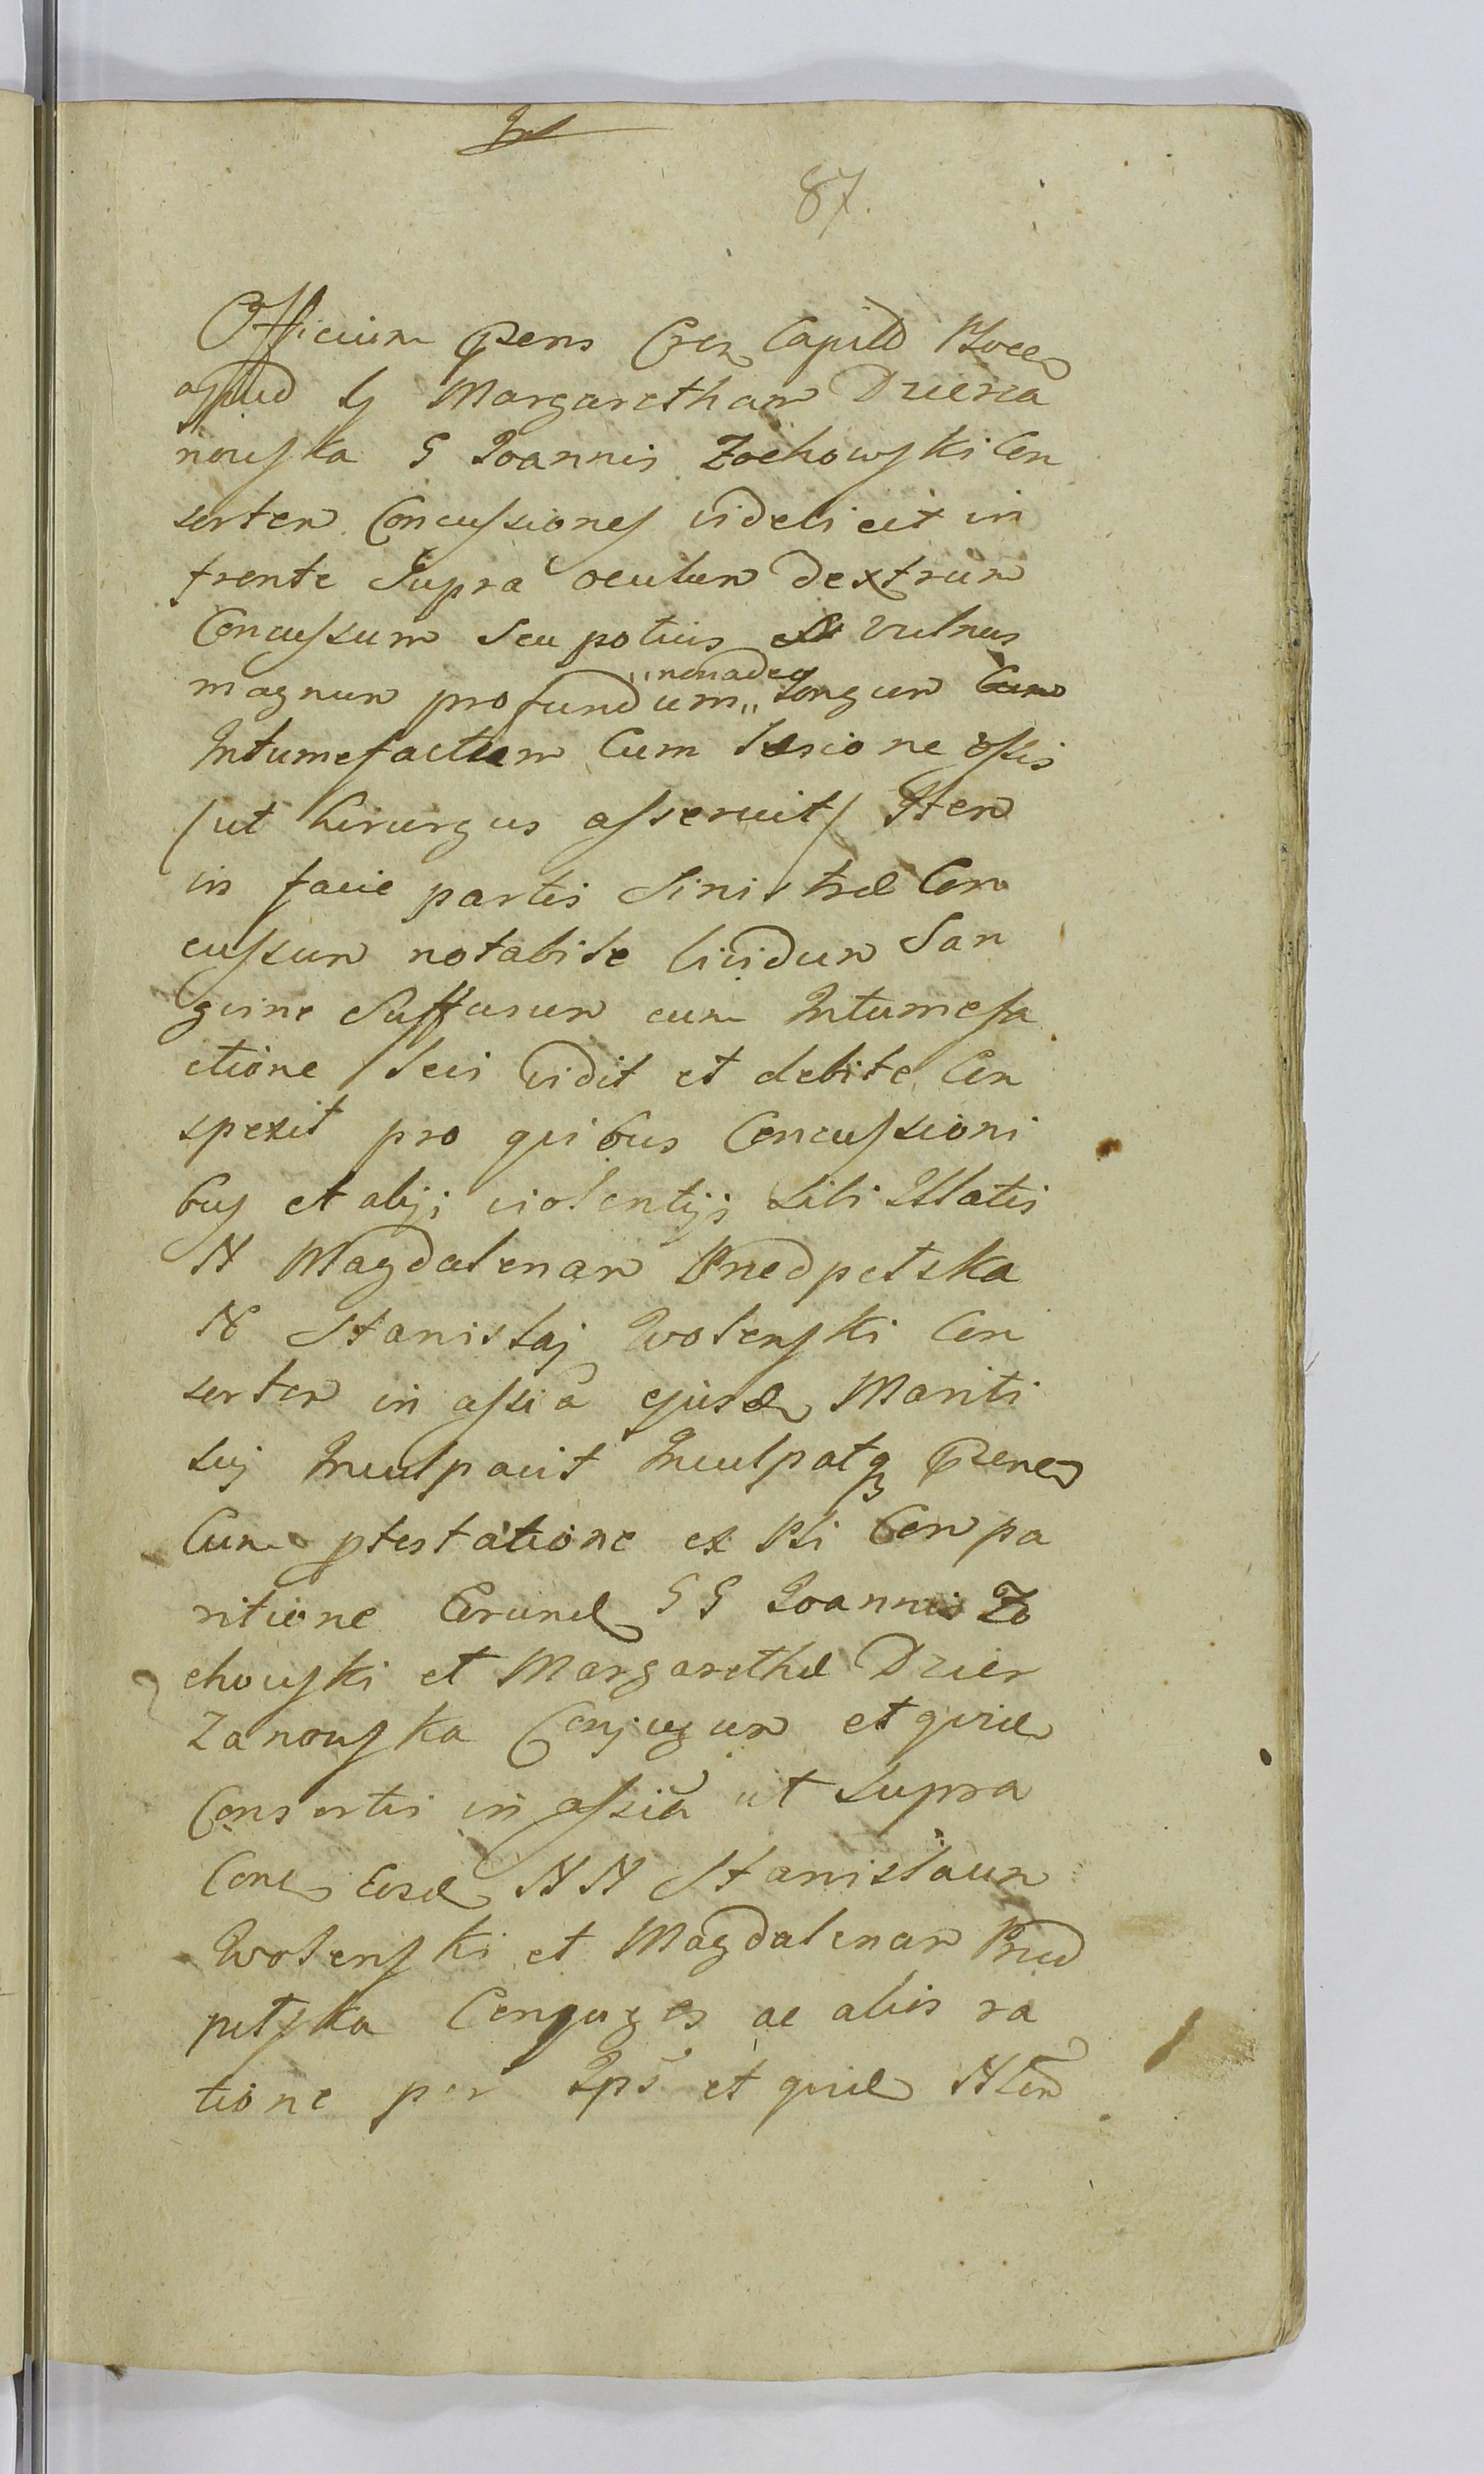 87.
Officium pens Cren Capitld
apud G Margaretham Drierza
nouska G Joannis Zochowski Con
sortem Concussiones videlicit in
fronte Supra oculum dextrum
Concussum seu potius vulnus
magnum profundum „non adeo„ longum
Intumefactum Cum lesione ossis
/ut hirurgus asseruit/ Item
in facie partis Sinistræ Con
cussum notabile lividum San
guine Suffusum cum Intumefa
ctione sui vidit et debite Con
spexit pro quibus Concussioni
bus et alijs violentijs sibi Illatis
N Magdalenam Pnedpetska
N Stanislaj Wolenski Con
sortem in assia ejusd Mariti
suj Inculpavit Inculpatq
Cum ptestatione ex Pti Compa
ritione Eorund G G Joannis Zo
chowski et Margarethæ Drier
zanouska Conjugum et quid
Consortis in assia ut supra
Con Eosd N N Stanislaum
Wolenski et Magdalenam Pned
petska Conjuges ac alios ra
tione per Ips et quid